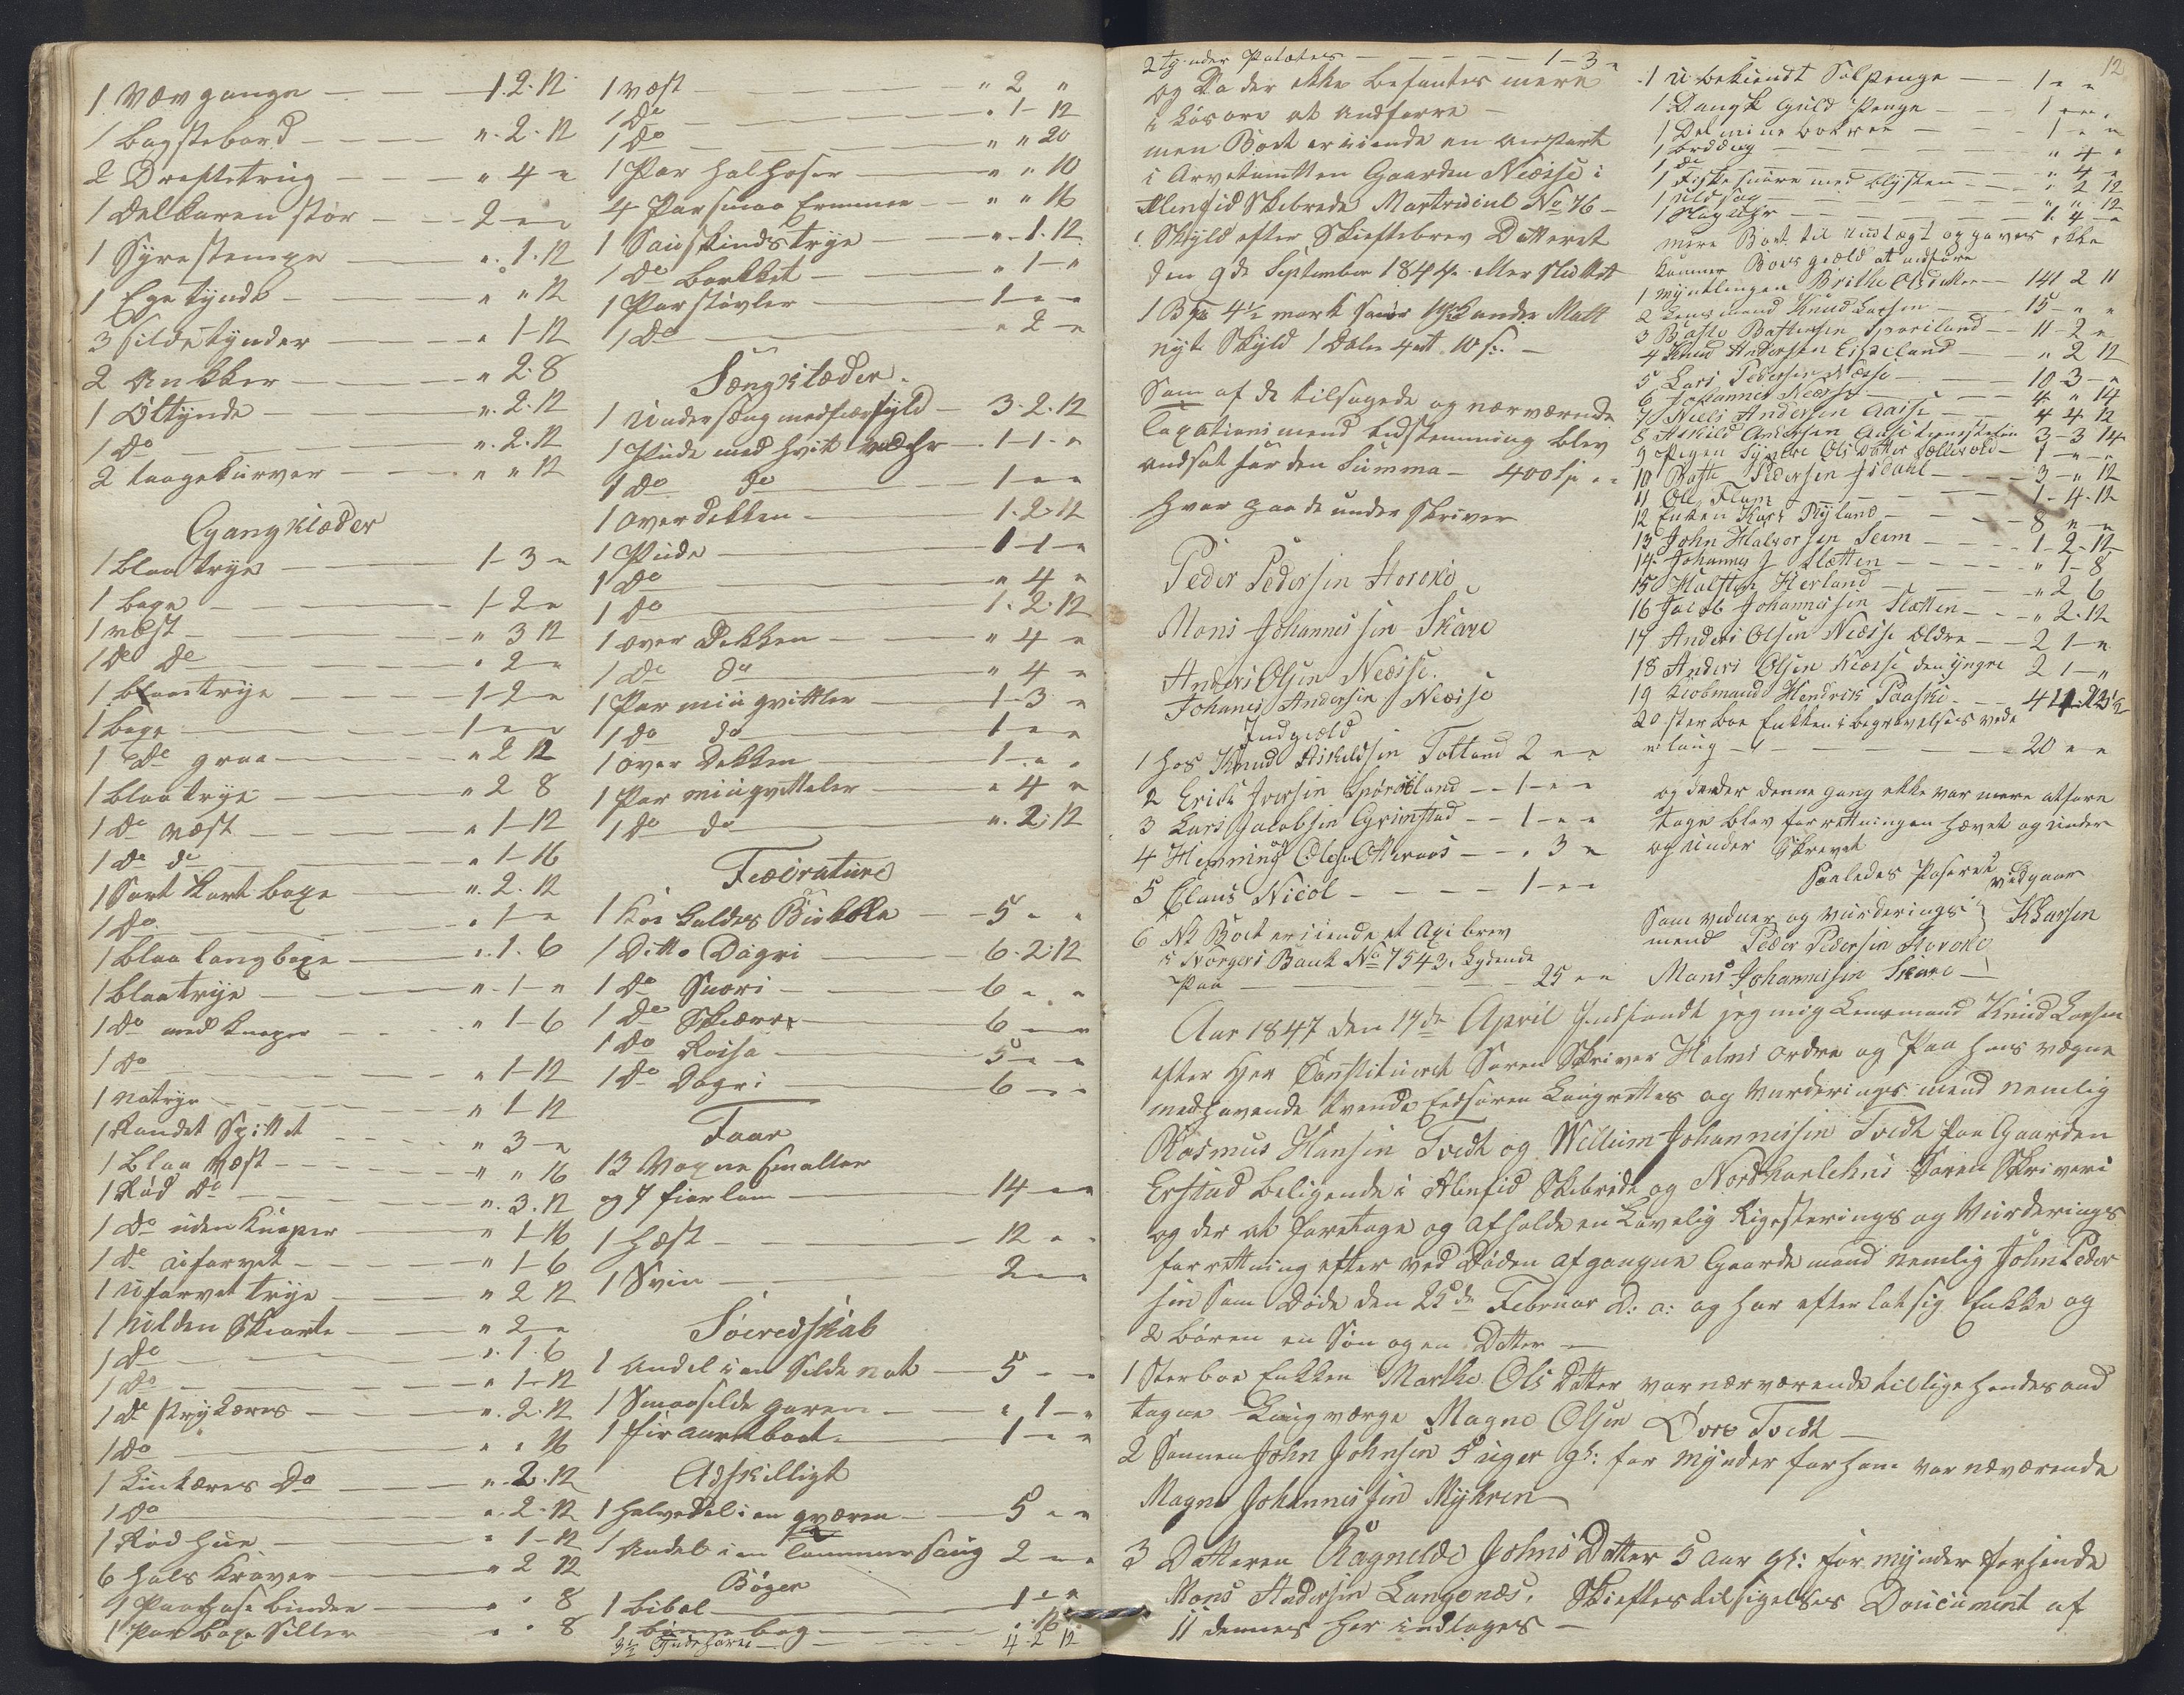 1 Vævgange - 1. 2. 12
1 bagstebord - " 2. 12
2 Dreftetrug - " 4 "
1 Delkaren stør - 2 " "
1 Syrestempe - " 1. 12
1 Egetynde - " " 12
3 sildetynder - " 1 - 12
2 Ankker - " 2. 8
1 Oltynde - " 2. 12
1 Do - " 2. 12
2 laagekurver - " " 12
Gangklæder
1 blaa trye - 1 - 3 "
1 boxe - 1 - 2 "
1 væst - " 3 12
1 Do Do - " 2 "
1 blaatrye - 1 - 2 "
1 boxe - 1 " "
1 Do graa - " 2 12
1 blaatrye - " 2 8
1 Do væst - " 1 - 12
1 Do do - " 1 - 16
1 Sort kort boxe - " 2. 12
1 Do - " 1 "
1 blaa lang boxe - " 1. 6
1 blaatrye - " 1 "
1 Do med knaper - " 1 - 6
1 Do - " 1 - 12
1 natrye - " 1 - 12
1 Randet Spittet - " 3 "
1 blaa væst - " " 16
1 Rød Do - " 3. 12
1 Do uden knaper - " 1 - 16
1 Do uforvet - " 1 - 6
1 uforvet trye - " 2 12
1 hilden Skiorte - " 2 "
1 Do - " 1. 6
1 Do - " 1 - 12
1 Do strykæres - " 2. 12
1 Do - " " 16
1 linkæres Do - " 2. 12
1 Do - " 2. 12
1 Rød hue - " 1 - 12
6 hals kraver - " 2 12
1 Par hose binder - " " 8
1 Par boxe Siller - " " 8
1 væst - " 2 "
1 Do - " 1 - 12
1 Do - " " 20
1 Par halhoser - " " 10
4 Par smaa Ermmer - " " 16
1 Sauskindstrye - " 1. 12
1 Do barkket - " 1 "
1 Par støvler - 1 " "
1 Do - " 2 "
Sængklæder
1 undersæng med fiærfyld - 3. 2. 12
1 Pude med hvit vadhr - 1 - 1 "
1 Do do - 1 " "
1 overdekken - 1. 2. 12
1 Pude - 1 - 1 "
1 Do - " 4 "
1 Do - 1. 2. 12
1 over Dekken - " 4 "
1 Do do - " 4 "
1 Par miugvittler - 1 - 3 "
1 Do do - 1 " "
1 over Dekken - 1 " "
1 Par miugvitteler - " 4 "
1 Do do - " 2. 12
Fæcrature
1 Koe kaldes Birkke - 5 " "
1 Ditto Dagri - 6. 2. 12
1 Do Snøri - 6 " "
1 Do Skiær - 6 " "
1 Do Roisa - 5 " "
1 Do Dagri - 6 " "
Faar
13 Voxne Smaller
og 7 fiorlam - 14 " "
1 hæst - 12 " "
1 Svin - 2 " "
Søeredskab
1 Andel i en Silde not - 5 " "
1 Smaasilde garen - " 1 "
1 firaarebaat - 1 " "
Adskilligt
1 halvedel i en qværn - 5 " "
1 Andel i en tømmer saug 2 " "
Bøger
1 bibel - 1 " "
1 bønne bog - " 16
3 1/2 Tynde havre - 4 2 12
2 tynder Potates - 1 - 3 "
og Da der ikke befantes mere
i Løsøre at andføre
men Boet er eiende en anpart
i Arvetomtten Gaarden Neæsse i
Alenfid Skibrede Martricul No 76
i Skyld efter Skieftebrev Datteret
den 9de September 1844
1 B 4 1/2 mark Smør
nyt Skyld 1 Daler 4 ort 10 s.
Som af de tilsagede og nærværende
Taxationsmend bestemming blev
andsat for den Summa - 400 Sp " "
hvor paa de underskriver
Peder Pedersen Horoke
Mons Johannessen Skare
Anders Olsen Neæsse.
Johanes Andersen Neæsse
Indgiæld
1 hos Knud Askildsen Totland 2 " "
2 Erick Iversen Sporsland - 1 " "
3 Lars Jacobsen Grimstad - 1 " "
4 Hemming Olsen Otteraas - " 3 "
5 Claus Nicol - 1 " "
6 Nb Boet er eiende et Axi brev
i Norges Bank No 7543 Lydende
paa - 25 " "
12
1 ubekiendt Sølpenge - 1 " "
1 Dansk Guld Penge - 1 " "
1 Delmine bokser - 1 " "
1 bordduug - " 4 "
1 do - " 4 "
1 Fiskesnøre med blysten - " 2 12
1 uldsax - " " 12
1 Slag uhr - 1. 4 "
mere Boet til Indtægt opgaves ikke
kommer Boets giæld at andføre
1 Myntlingen Brithe Olsdatter - 141 2 11
2 Lensmand Knud Larsen - 15 " "
3 Baste Bastensen Sporsland - 11 - 2 "
4 Knud Andersen Eideland - " 2 12
5 Lars Pedersen Neæsse - 10 - 3 "
6 Johannes Neæsse - 4 " 14
7 Niels Andersen Aase - 4 4 12
8 Askild Andersen Aase tienestefen 3 - 3 14
9 Pigen Synneve Olsdatter Sællevold - 1 " "
10 Baste Pedersen Isdahl - 3 " 12
11 Ole Flam - 1. 4. 12
12 Enken Kari Ryland - 8 " "
13 John Halvorsen Seim - 1 - 2 - 12
14 Johannes J Slætten - " 1 - 8
15 Halsten Herland - " 2 6
16 Jacob Johannessen Slætten - " 2. 12
17 Anders Olsen Neæsse ældre - 2 1 "
18 Anders Olsen Neæsse den yngre 2 1 "
19 Kiøbmand Hendrik Paaske - 41
20 Sterboe Enkken i begravelses vede
erlaug - 20 " "
og da der denne gang ikke var mere at fore
tage blev forretningen hævet og under
og under Skrevet
Saaledes Paseret vedgaar
Som vidner og vurderings KLarsen
mend Peder Pedersen Horoke
Mons Johannessen Skare
Aar 1847 den 17de April Indfandt jeg mig Lensmand Knud Larsen
efter Hjer Constitueret Soren Skriver Holms ordre og Paa hans vægne
medhavende tvende Eedsoren Laugrettes og Vurderings mend nemlig
Rasmus Hansen Tvedt og Willum Johannessen Tvedt paa Gaarden
Erstad beliggende i Alenfid Skibrede og Nordhorlehns Soren Skriveri
og der at foretage og afholde en Lovelig Rigesterings og Vurderings
forretning efter ved Døden afgangne Gaardemand nemlig John Peder
sen som Døde den 25de Februar D: a: og har efterlat sig Enkke og
2 børen en Søn og en Datter
1 Sterboe Enkken Marthe Ols Datter var nærværende tillige hendes and
tagne Laugværge Magne Olsen Øvre Tvedt
2 Sønnen John Johnsen 5 uger gl: for mynder for ham var næværende
Magne Johannessen Myhren
3 Datteren Ragnelde Johns Datter 5 aar gl: formynder for hende
Mons Andersen Langenæs, Skieftes tilsigelses Doucument af
11 dennes her indtages